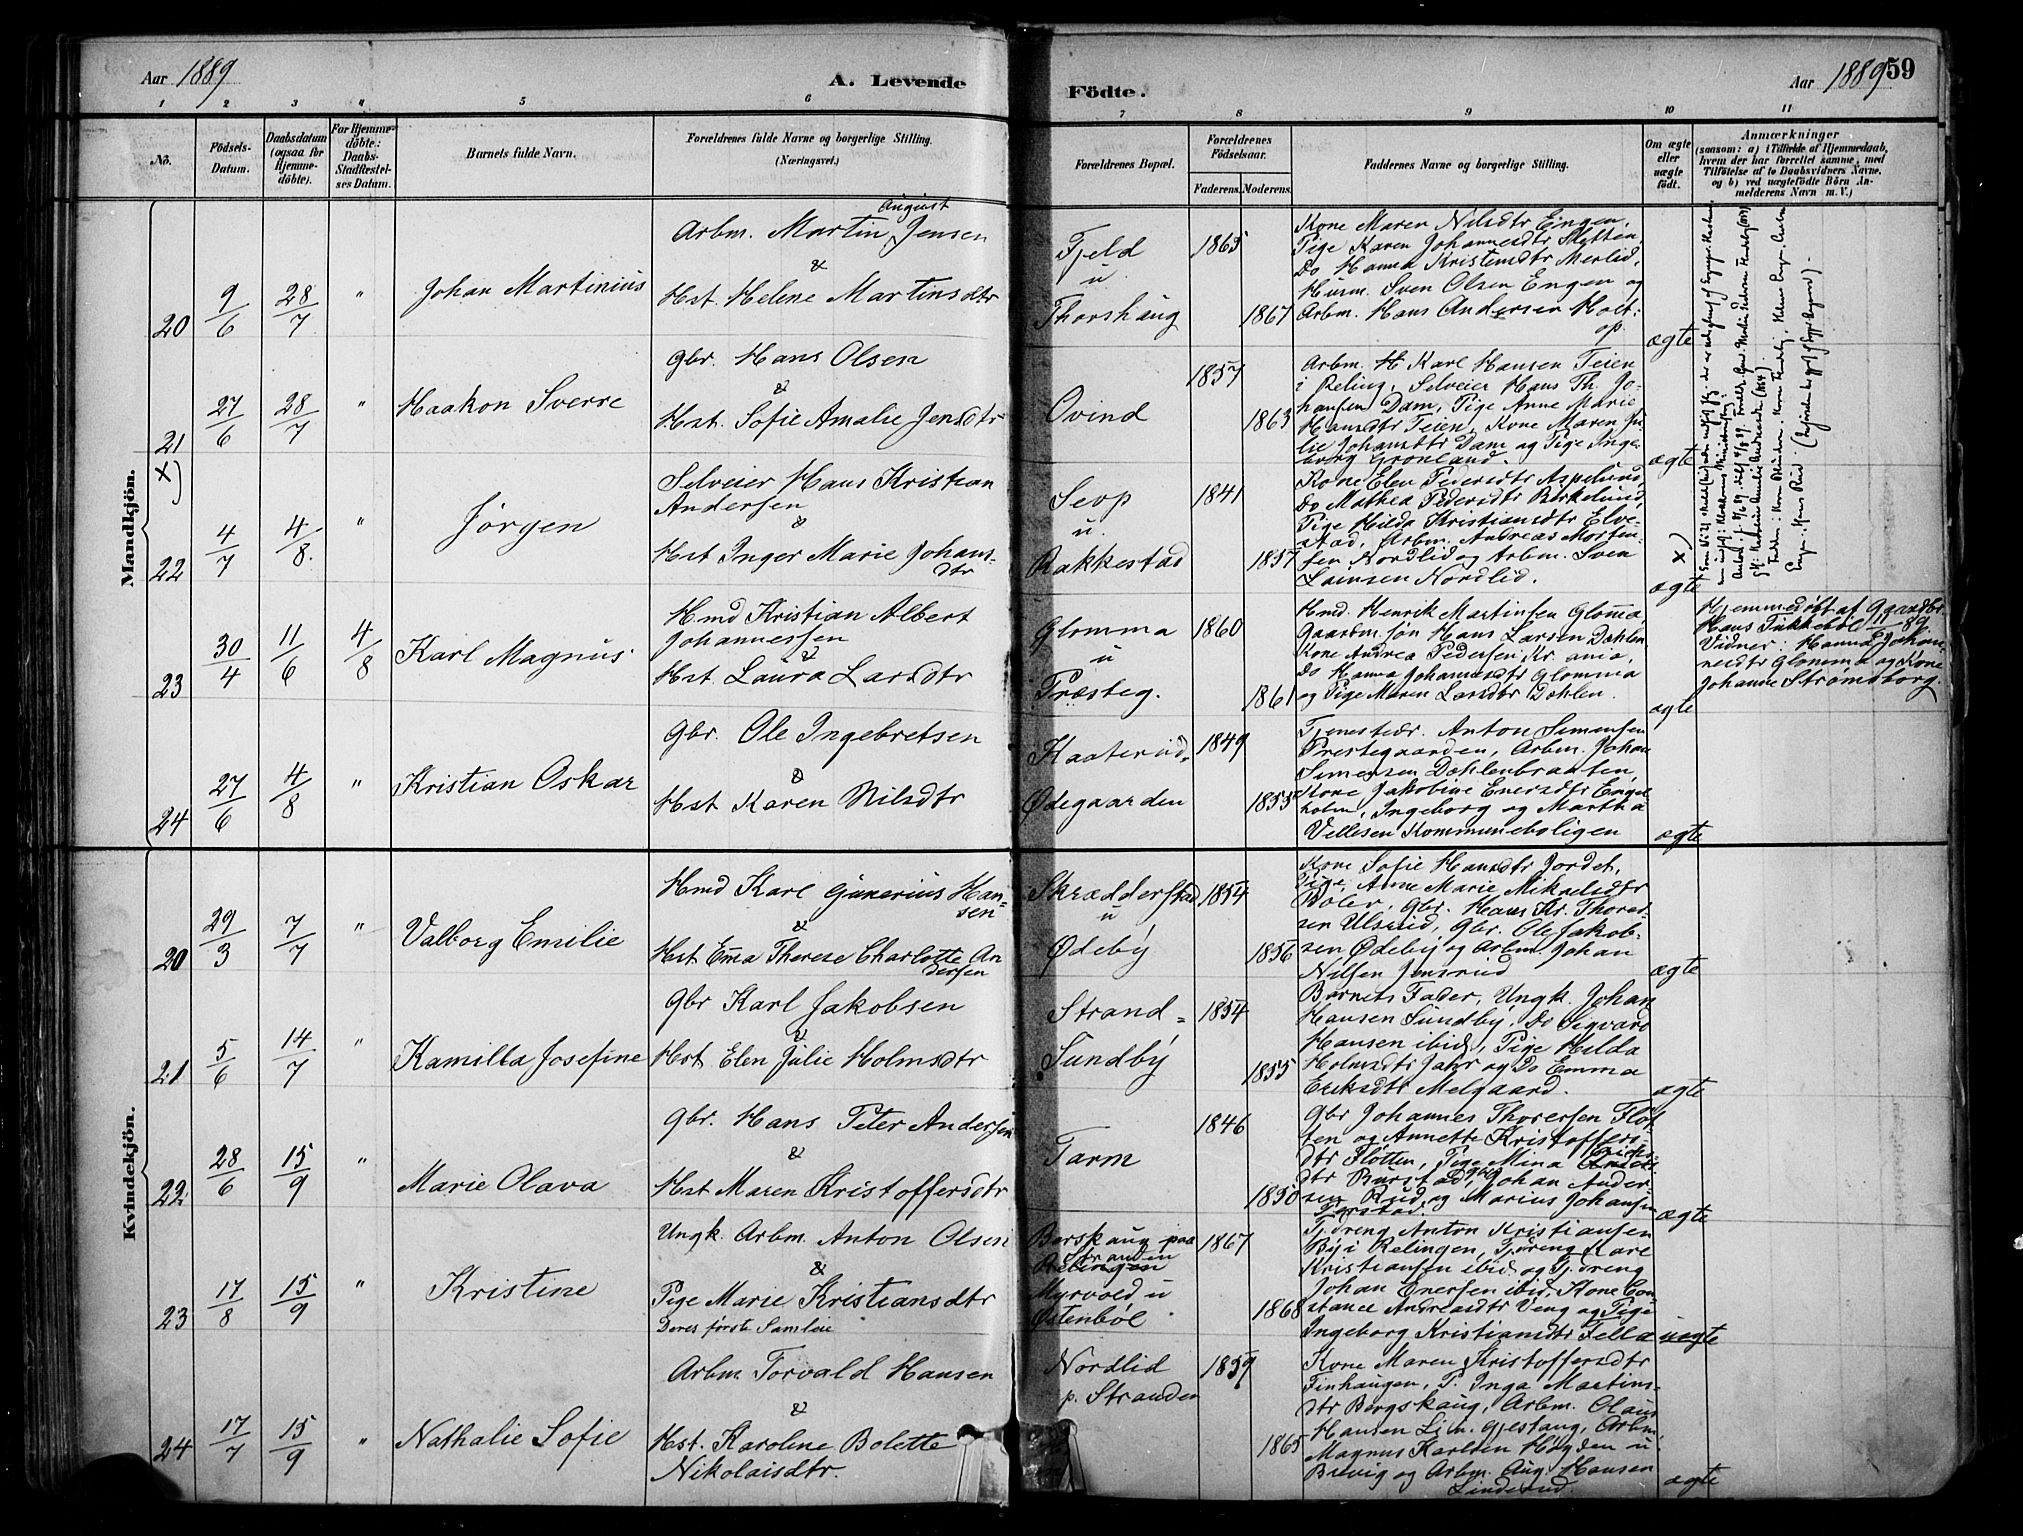 Aar 1889
A. Levende
Födte.
Aar 1889
59
1 2 3 " 5 6 7 8 9 10 11
No.
Födsels-
Datum.
Daabsdatum
(ogsaa for
Hjemme-
döbte).
For Hjemme-
döbte:
Daabs-
Stadfæstel-
ses Datum.
Barnets fulde Navn.
Forældrenes fulde Navne og borgerlige Stilling.
(Næringsvei.)
Forældrenes Bopæl.
Forældrenes
Födselsaar.
Faderens.
Moderens.
Faddernes Navne og borgerlige Stilling.
Om ægte
eller
uægte
födt.
Anmærkninger
(saasom: a) i Tilfælde af Hjemmedaab,
hvem der har forrettet samme, med
Tilföielse af to Daabsvidners Navne,
og b) ved uægtefödte Börn An-
melderens Navn m. V.)
Mandkjön.
20
9/6
28/7
"
Johan Martinius
August
Arbm. Martin Jensen
&
Hst. Helene Martinsdtr
Fjeld
u
Thorshaug
1865
1867
Kone Maren Nilsdtr Engen,
Pige Karen Johannesdtr Sletten,
Do Hanna Kristensdtr Merlid,
Husm. Sven Olsen Engen og
Arbm. Hans Andersen Holt:
op.
ægte
21
27/6
28/7
"
Haakon Sverre
Gbr. Hans Olsen
&
Hst. Sofie Amalie Jensdtr
Ovind
1857
1863
Arbm. Karl Hansen Teien
i Reling, Selveier Hans Th. Jo-
hansen Dam, Pige Anne Marie
Hansdtr Teien, Kone Maren Ju-
lie Johansdtr Dam og Pige Inge-
borg Grønland.
ægte
x)
22
4/7
4/8.
"
Jørgen
Selveier Hans Kristian
Andersen
&
Hst Inger Marie Johans-
dtr
Sevp
u.
Rakkestad
1841
1857
Kone Elen Pedersdtr Aspelund,
Do Mathea Pedersdtr Berkelund,
Pige Hilda Kristiansdtr Elve-
stad, Arbm. Andreas Morten-
sen Nordlid og Arbm. Sven
Larsen Nordlid.
ægte
x)
23
30/4
11/6
4/8
Karl Magnus
Hmd Kristian Albert
Johannessen
&
Hst. Laura Larsdtr
Glomma
u
Præsteg.
1860
1861
Hmd. Henrik Martinsen Glomma,
Gaardm. Søn Hans Larsen Dahlen
Kone Andrea Pedersen Kr.ania,
Do Hanna Johannesdtr Glomma
og Pige Maren Larsdtr Dahlen.
ægte
Hjemmedøbt af Gaardbr.
Hans Tukkebøl 11/6 89
Vidner: Hanna Johan-
nesdtr Glomma og Kone
Johanne Strømsborg.
24
27/6
4/8
"
Kristian Oskar
Gbr. Ole Ingebretsen
&
Hst Karen Nilsdtr
Kaaterud,
Ødegaarden
1849
1855
Tjenestedr. Anton Simensen
Prestegaarden, Arbm. Johan
Simensen Dahlenbraaten,
Kone Jakobine Enersdtr Engel-
holm, Ingeborg og Martha
Vellesen Kommuneboligen
ægte
Kvindekjön.
20
29/3
7/7
"
Valborg Emilie
Hmd Karl Gunerius Han-
sen
&
Hst Emma Therese Charlotte An
dersen
Skrædderstad
u
Ødeby
1854
1856
Kone Sofie Hansdtr Jordet,
Pige Anne Marie Mikaelsdtr
Boler, Gbr. Hans Kr. Thorer-
sen Ulsrud, Gbr. Ole Jakob-
sen Ødeby og Arbm Johan
Nilsen Jonsrud
ægte
21
5/6
14/7
"
Kamilla Josefine
Gbr Karl Jakobsen
&
Hst Elen Julie Holmsdtr
Strand=
Sundby
1854
1855
Barnets Fader, Ungk. Johan
Hansen Sundby, Do Sigvard
Hansen ibid, Pige Hilda
Holmsdtr Jahr og Do Emma
Eriksdtr Melgaard.
ægte
22
28/6
15/9
"
Marie Olava
Gbr. Hans Peter Andersen
&
Hst Maren Kristoffersdtr
Tarm
1846
1850
Gbr Johannes Thorersen Flot
ten og Annette Kristoffers
dtr Flotten, Pige Mina
dtr Burstad, Gbr Johan Ander
sen Rud og Marius Johansen
Torstad.
ægte
23
17/8
15/9
"
Kristine
Ungk. Arbm. Anton Olsen
&
Pige Marie Kristiansdtr
Deres første Samleie
Borskaug paa
Stranden
Relingen
Myrvold u
Østenbøl
1867
1868
Tjdreng Anton Kristiansen
By i Relingen, Tjdreng Kare
Kristiansen ibid. og Tjdreng
Johan Enersen ibid, Kone Con
stance Andreasdtr Veng og Pige
Ingeborg Kristiansdtr Fella
uægte
24
17/7
15/9
"
Nathalie Sofie
Arbm Torvald Hansen
&
Hst. Karoline Bolette
Nikolaisdtr.
Nordlid
p. Stranden
1859
1865
Kone Maren Kristoffersdtr
Finhaugen, P. Inga Martins-
dtr Borgskaug, Arbm. Olaus
Hansen Lin. Gjestang, Arbm.
Magnus Karlsen Høgden u
Brevig og Arbm. Aug. Hansen
Linderud.
ægte